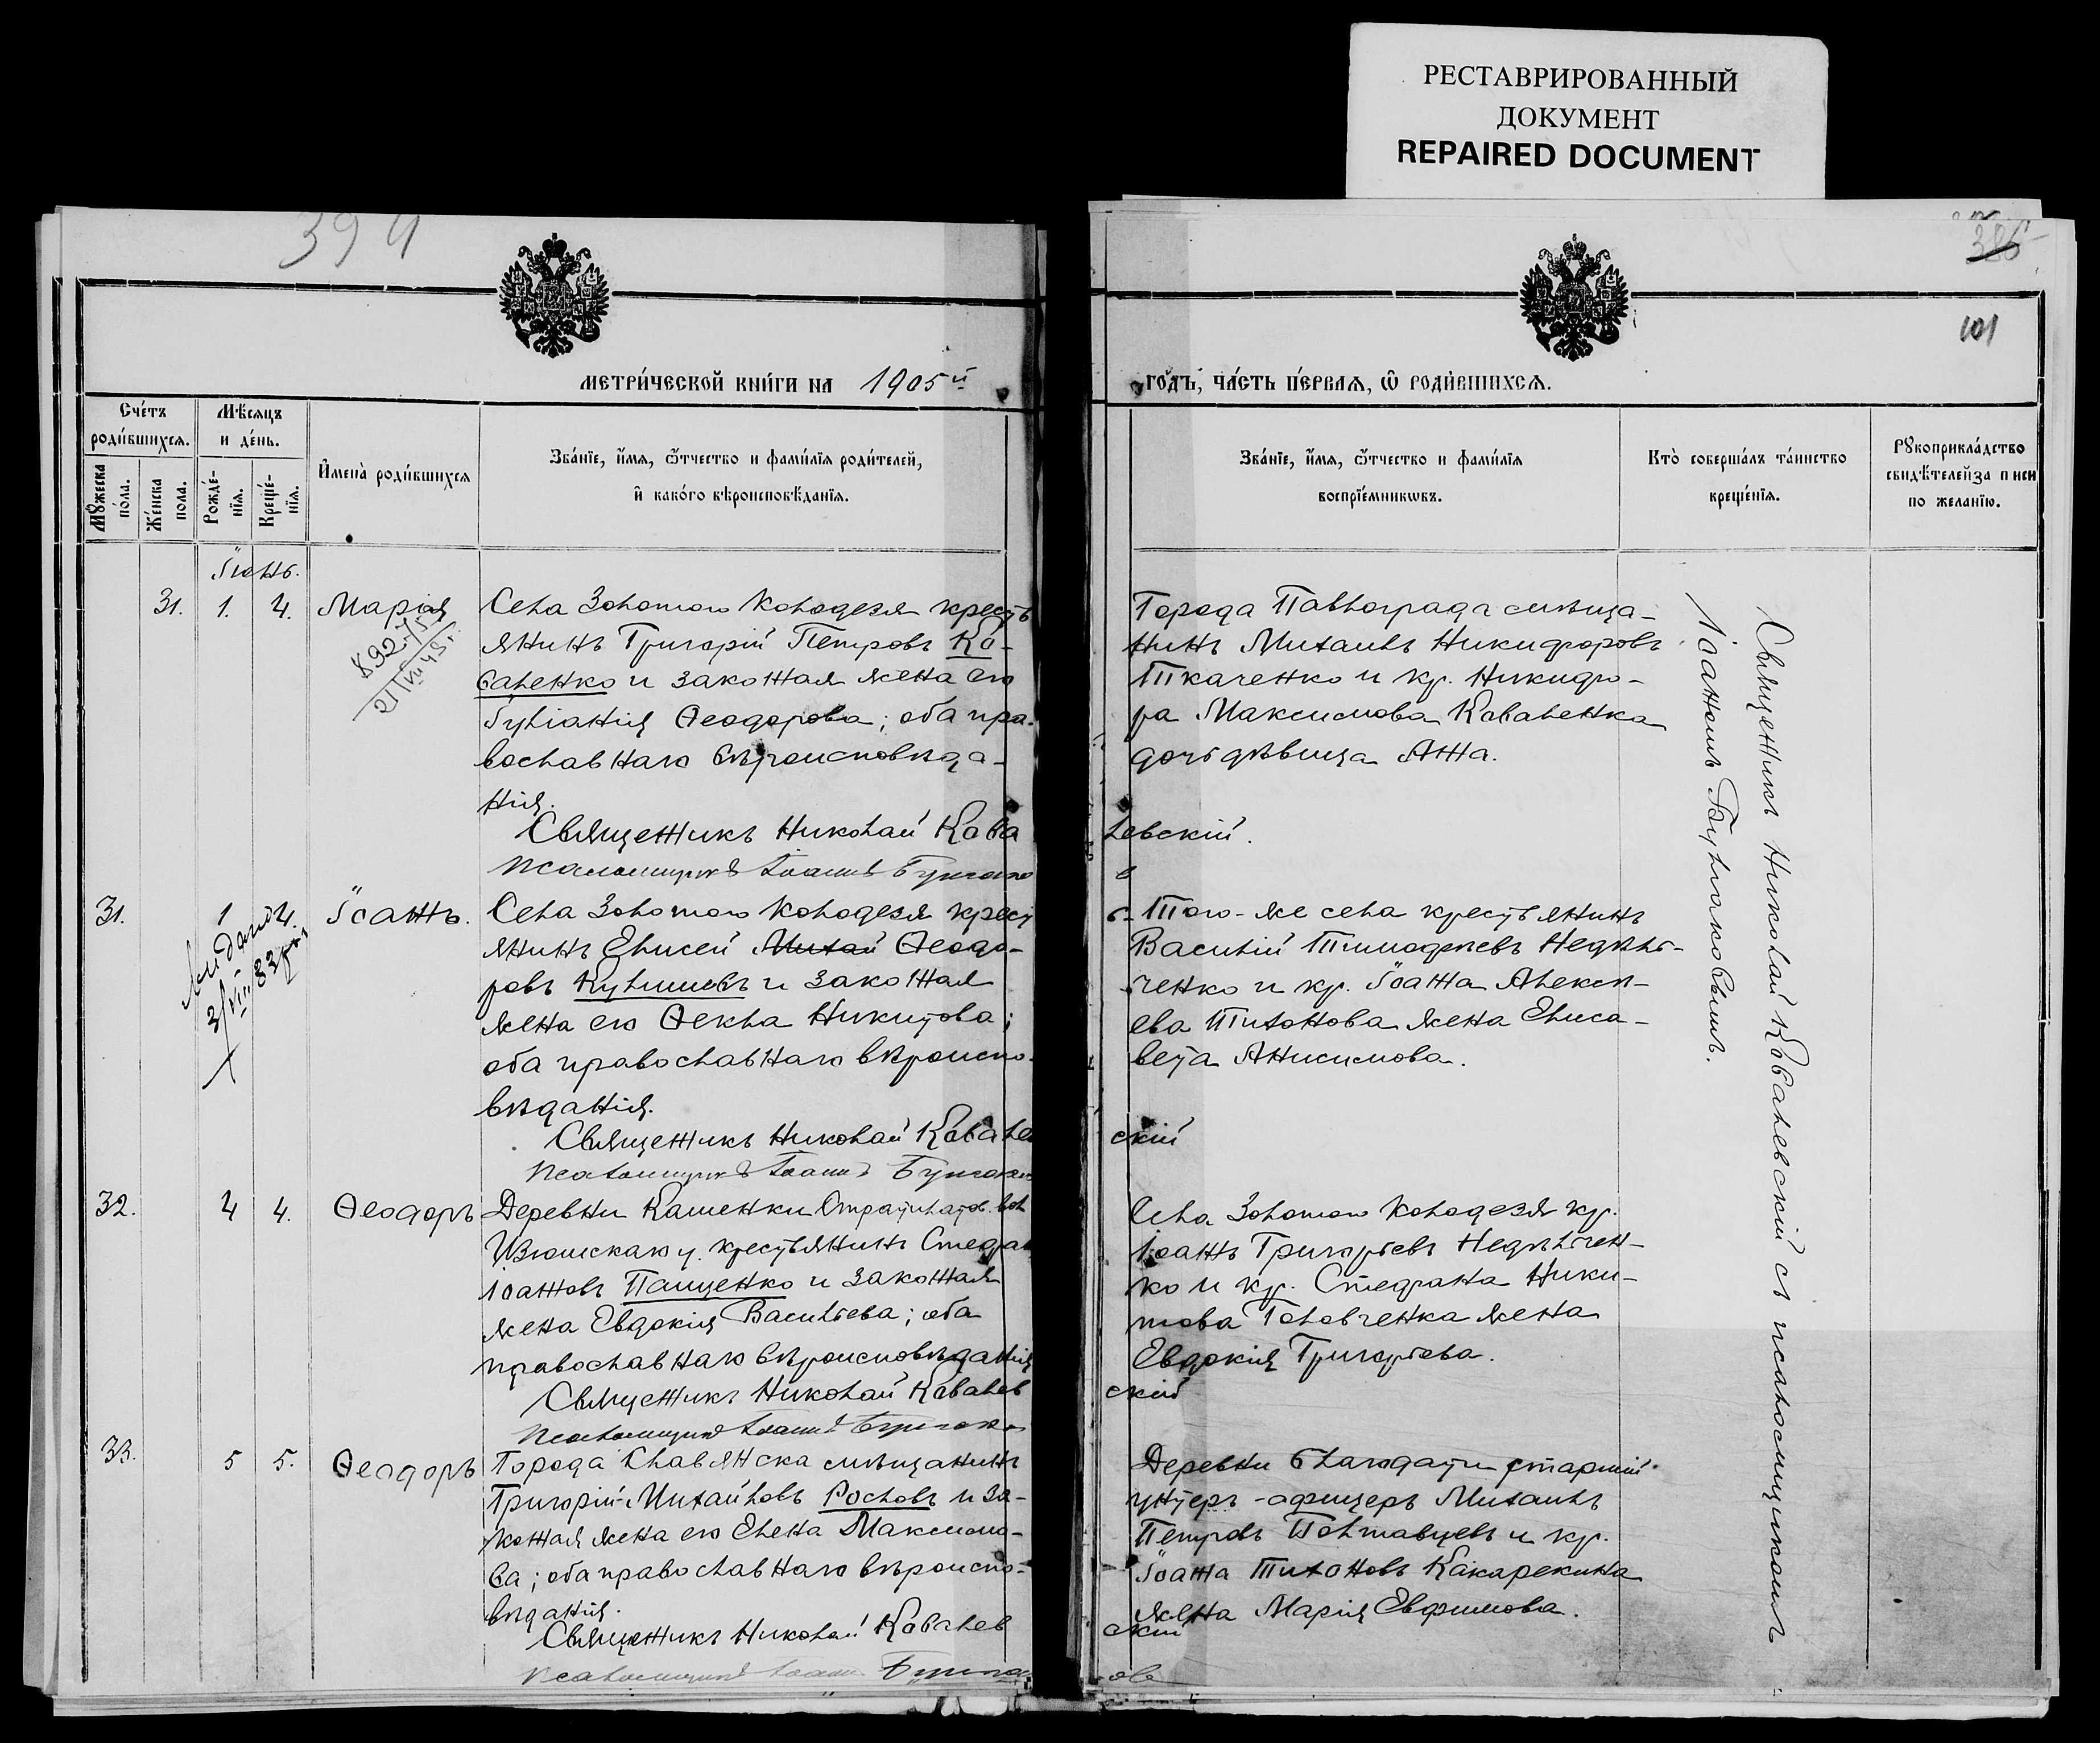 РЕСТАВРИРОВАННЫЙ
ДОКУМЕНТ
REPAIRED DOCUMENT
394
386
101
МЕТРИ́ЧЕСКОЙ КНИ́ГИ НА 1905й
ГО́ДЪ, ЧА́СТЬ ПЕ́РВАѦ, Ѡ РОДИ́ВШИХСѦ.
Сче́тъ роди́вшихсѧ.
Мѣ́сѧцъ и де́нь.
Мꙋ́жеска по́ла.
Же́нска пола.
Рожде́нїѧ.
Креще́нїѧ.
И҆мена̀ роди́вшихсѧ
Зва́нїе, и҆́мѧ, ѻ҆́тчество и фами́лїѧ роди́телей,
и҆ како́го вѣроисповѣ́данїѧ.
Зва́нїе, и҆́мѧ, ѻ҆́тчество и фами́лїѧ
воспрїе́мникѡвъ.
Кто̀ соверша́лъ та́инство
креще́нїѧ.
Рꙋкоприкла́дство
свидѣ́телей за писи
по жела́нїю.
Іюнь.
31. 1. 4. Марія
Села Золотого Колодезя кресть
янинъ Григорій Петровъ Ко-
валенко и законная жена его
Іуліанія Ѳеодорова; оба пра-
вославнаго вѣроисповѣда-
нія.
Священникъ Николай Кова
левскій.
Псаломщикъ Іоаннъ Булгако
в
Города Павлограда мѣща-
нинъ Михаилъ Никифоровъ
Ткаченко и кр. Никифо-
ра Максимова Коваленка
дочь дѣвица Анна.
Священникъ Николай Ковалевскій съ псаломщикомъ
Іоанномъ Булгаковымъ.
31. 1 4. Іоаннъ.
Села Золотого Колодезя крест
янинъ Елисей Михай Ѳеодо-
ровъ Кулишевъ и законная
жена его Ѳекла Никитова;
оба православнаго вѣроиспо-
вѣданія.
Священникъ Николай Ковале
скій
Псаломщикъ Іоаннъ Булгаков
ь- Того-же села крестьянинъ
Василій Тимофеевъ Недѣль-
ченко и кр. Іоанна Алексѣ-
ева Тихонова жена Елиса-
вета Анисимова.
32. 4 4. Ѳеодоръ
Деревни Каменки Стратилатов. вол
Изюмскаго у. крестьянинъ Стефан
Іоанновъ Пащенко и законная
жена Евдокія Васильева; оба
православнаго вѣроисповѣданія
Священникъ Николай Ковалев
скій
Псаломщикъ Іоаннъ Булгаков
Села Золотого Колодезя кр.
Іоаннъ Григорьевъ Недѣльчен-
ко и кр. Стефана Ники-
това Головченка жена
Евдокія Григорьева.
33. 5 5. Ѳеодоръ
Города Славянска мѣщанинъ
Григорій Михайловъ Рословъ и за-
конная жена его Елена Максимо-
ва; оба православнаго вѣроиспо-
вѣданія.
Священникъ Николай Ковалев
скій
Псаломщикъ Іоаннъ Булгак
ова
Деревни Благодати старшій
унтеръ-офицеръ Михаилъ
Петровъ Полтавцевъ и кр.
Іоанна Тихоновъ Какарекина
жена Марія Евфимова.